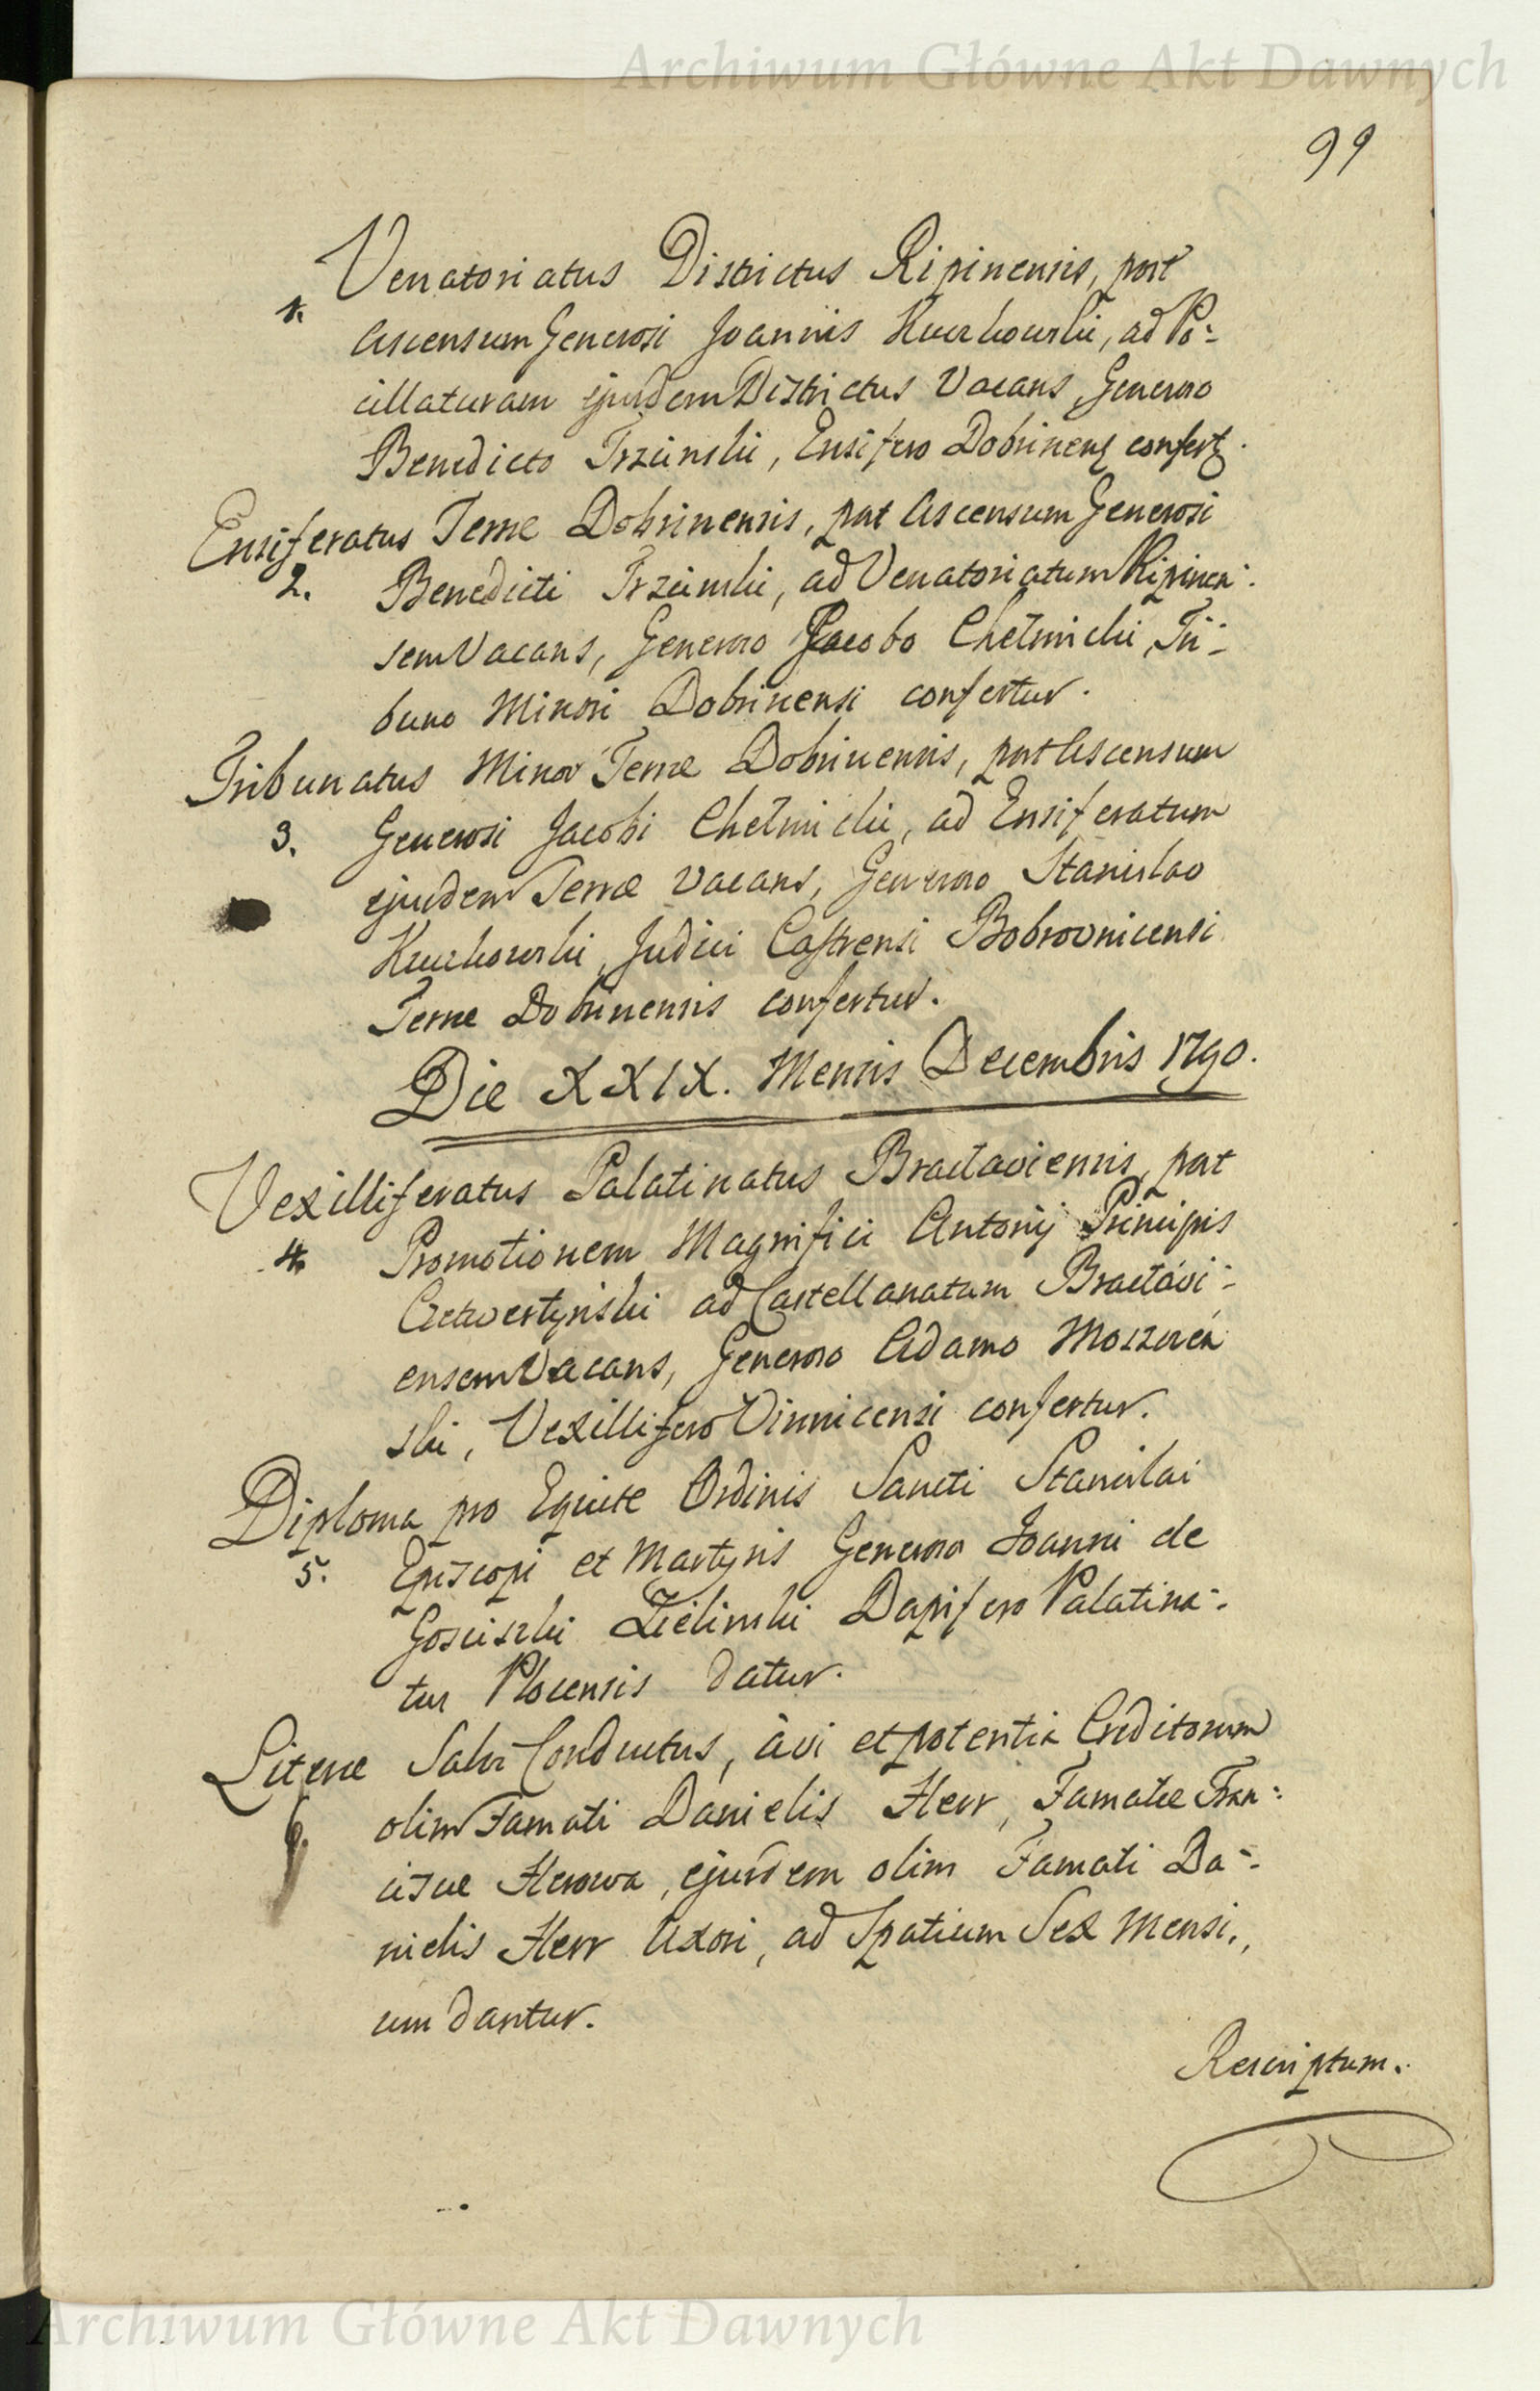 Archiwum Główne Akt Dawnych
99
Venatoriatus Districtus Ripinensis, post
1. Ascensum Generosi Joannis ad Po=
cillaturam ejusdem Districtus Vacans, Generoso
Benedicto Trzcinski, Ensifero Dobrinens confert
Ensiferatus Terræ Dobrinensis, post Ascensum Generosi
2. Benedicti Trzcinski, ad Venatoriatum Ripinen=
sem Vacans, Generoso Jacobo Chełmicki, Tri=
buno Minori Dobrinensi confertur.
Tribunatus Minor Terræ Dobrinensis, post Ascensum
3. Generosi Jacobi Chełmicki, ad Ensiferatum
ejusdem Terræ vacans, Generoso Stanislao
Judici Castrensi Bobrovnicensi
Terræ Dobrinensis confertur.
Die XXIX. Mensis Decembris 1790.
Vexilliferatus Palatinatus Bracłaviensis, post
4. Promotionem Magnifici Antonij Principis
Czetwertyński ad Castellanatum Bracłavi=
ensem Vacans, Generoso Adamo Moszczeń
ski, Vexillifero Vinnicensi confertur.
Diploma pro Equite Ordinis Sancti Stanislai
5. Episcopi et Martyris Generoso Joanni de
Gosciszki Zielinski Dapifero Palatina=
tus Plocensis datur.
Literæ Salvi Conductus, à vi et potentia Creditorum
6. olim Famati Danielis Herr, Famatæ Fran=
ciscæ Herowa, ejusdem olim Famati Da=
nielis Herr Uxori, ad Spatium Sex Mensi,,
um dantur.
Rescriptum.
Archiwum Główne Akt Dawnych